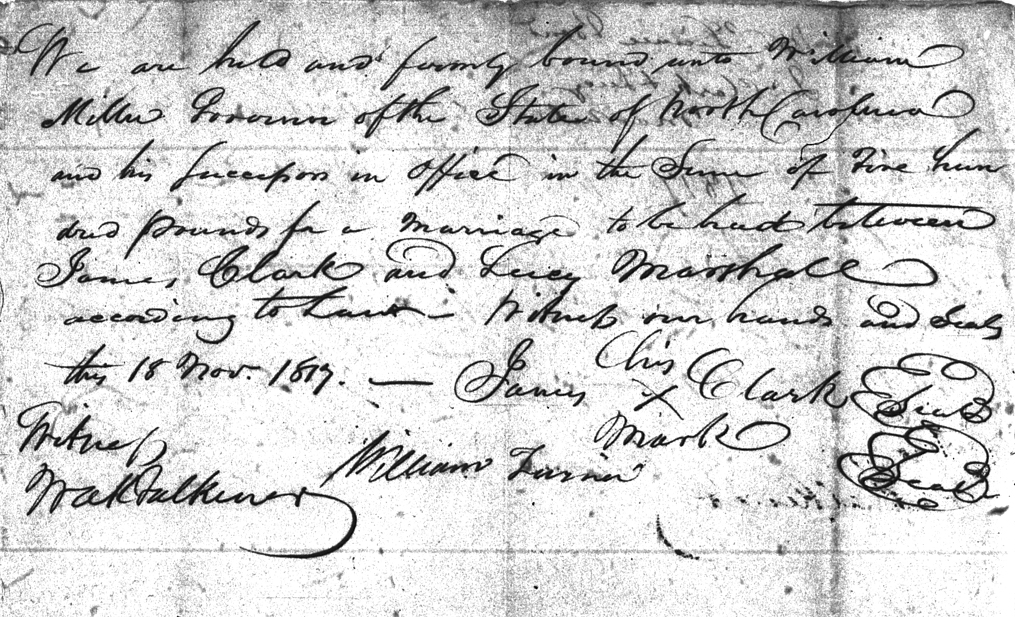 We are held and firmly bound unto William
Miller Governor of the State of North Carolina
and his Successors in office in the Sum of Five hun
dred pounds for a marriage to be had between
James Clark and Lucy Marshall
according to Law – Witness our hands and Seals
this 18 Nov. 1817. — James his X mark Clark Seal
Witness
William Seal